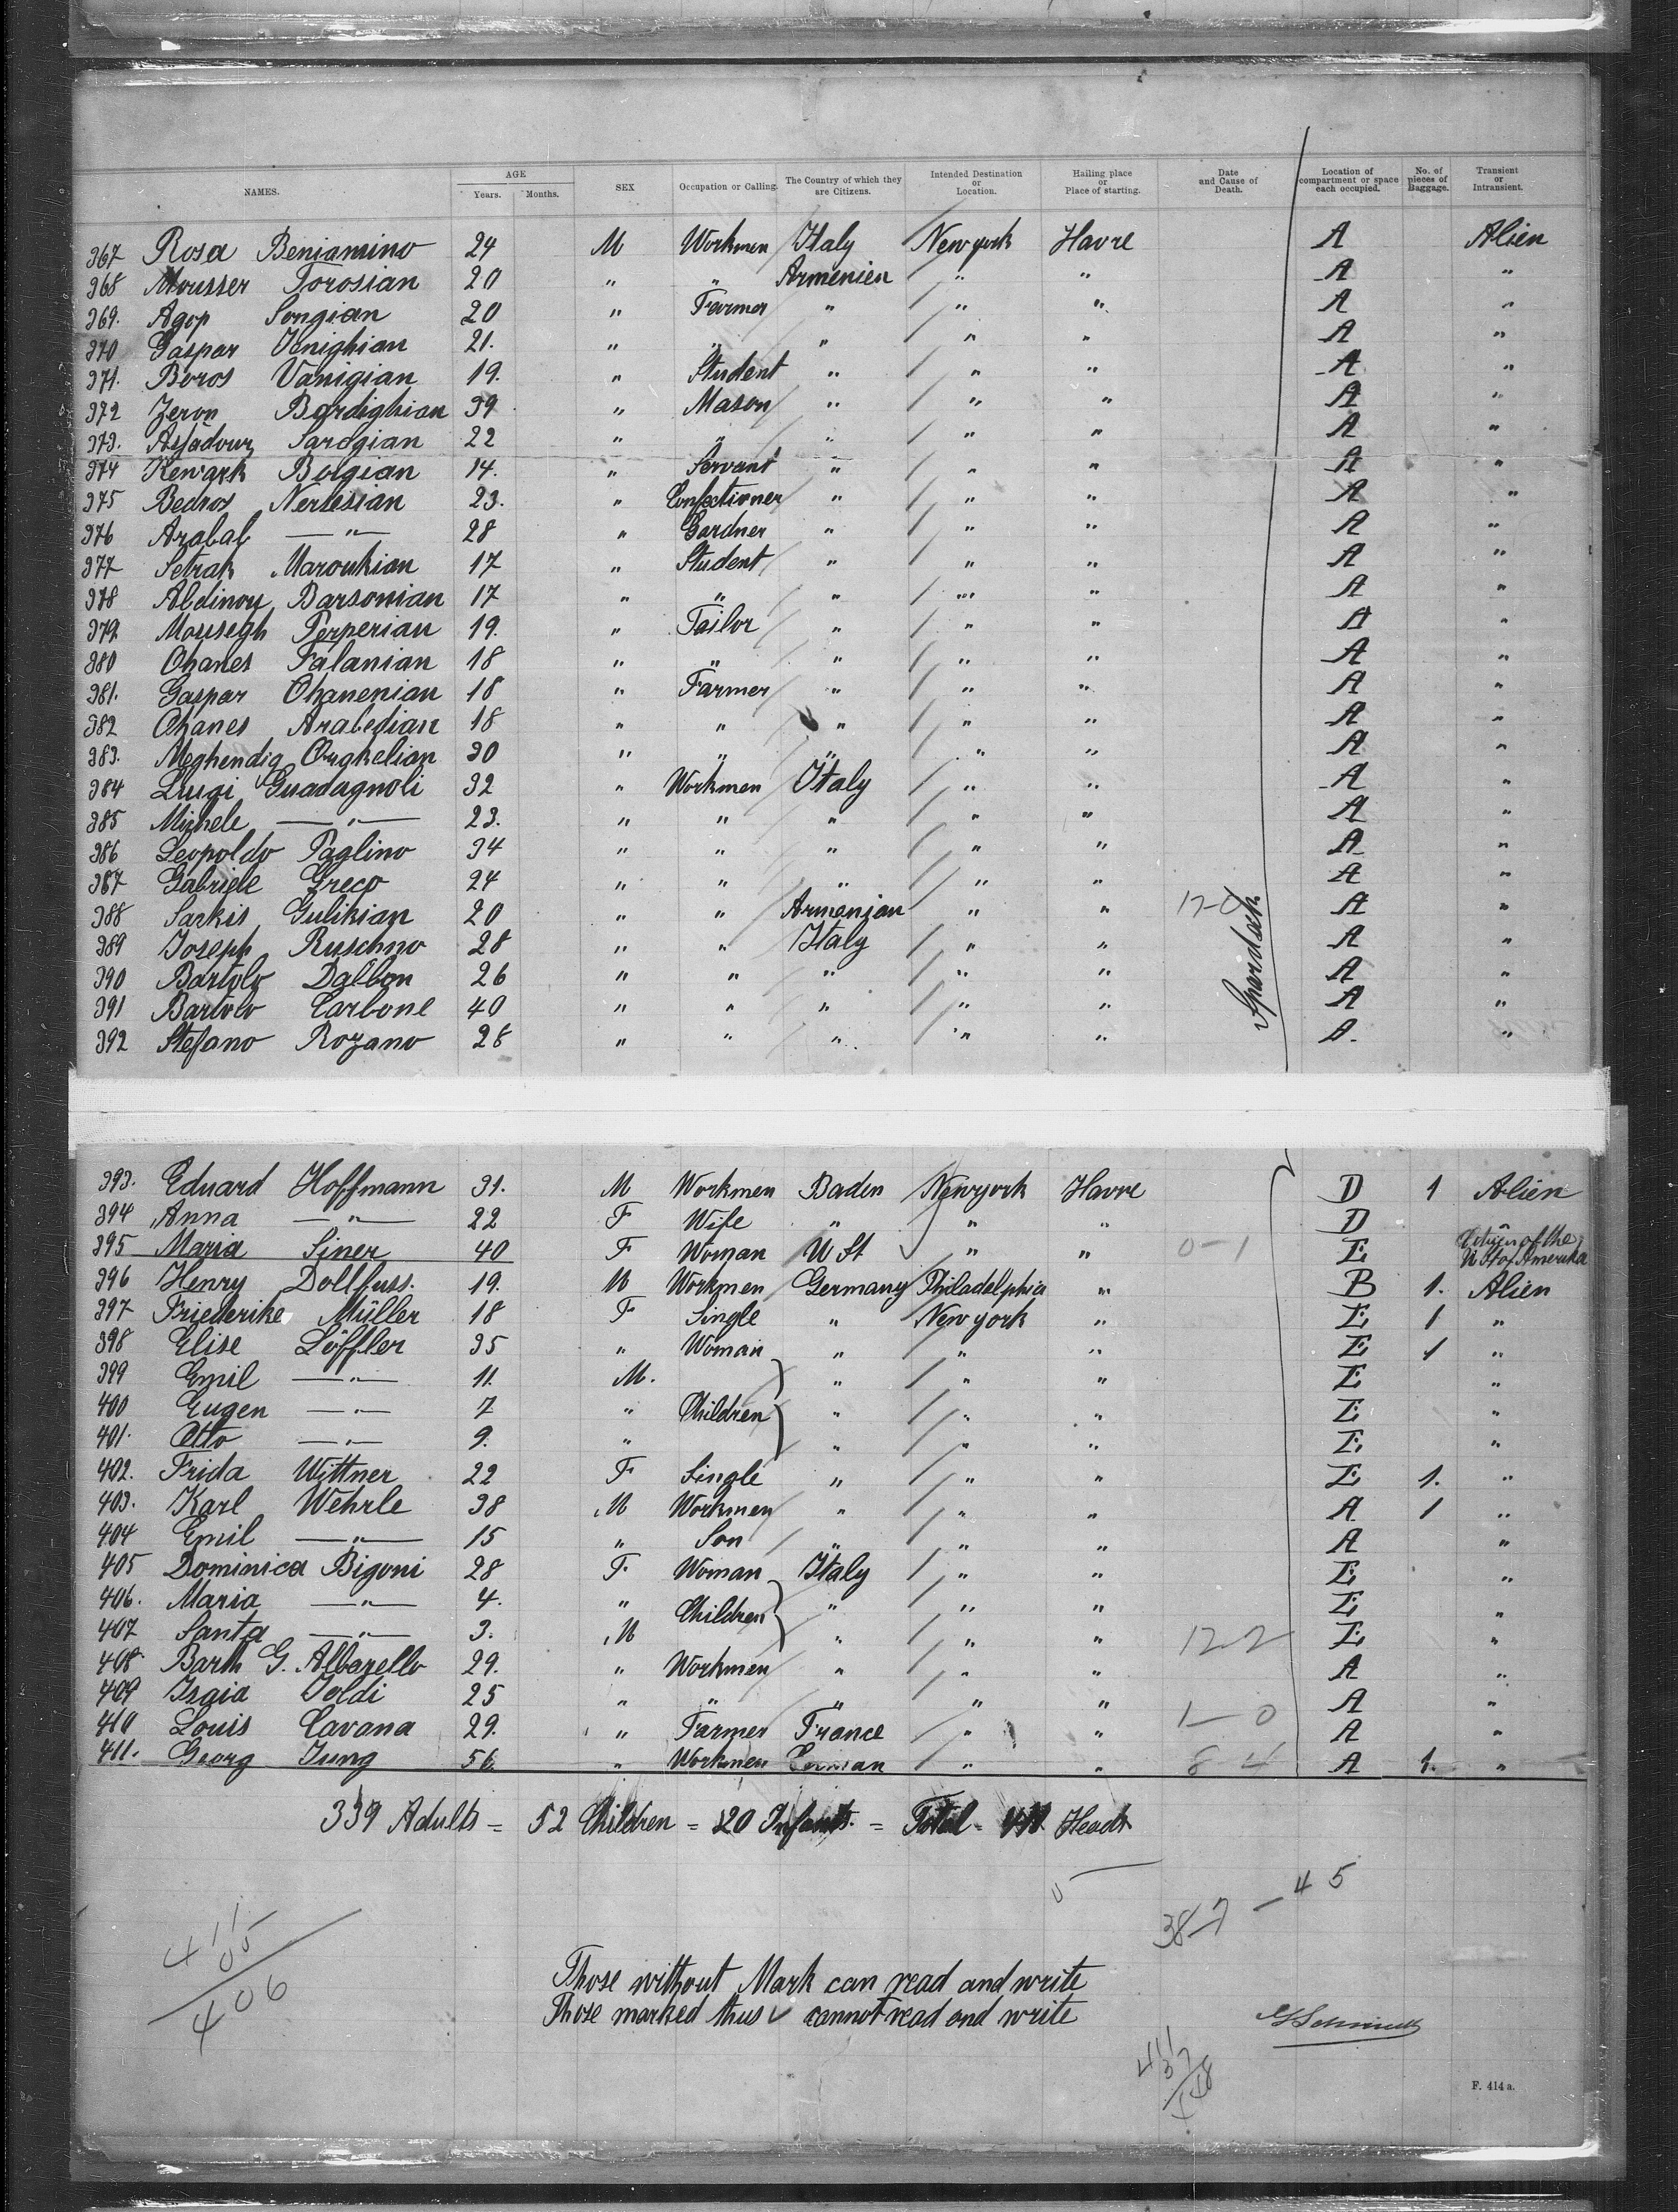 NAMES. AGE Years. Months. SEX Occupation or Calling. The Country of which they are Citizens. Intended Destination or Location. Hailing place or Place of starting. Date and Cause of Death. Location of compartment or space each occupied. No. of pieces of Baggage. Transient or Intransient.
367 Rosa Beniamino 24 M Workmen Italy New york Havre A Alien
368 Mousser Torosian 20 " " Armenien " " A "
369. Agop Songian 20 " Farmer " " " A "
370 Gaspar Jenighian 21. " " " " " A "
371. Boros Vanigian 19. " Student " " " A "
372 Zeron Bardighian 39 " Mason " " " A "
373. Assadour Sarogian 22 " " " " " A "
374 Kework Boigian 14. " Servant " " " A "
375 Bedros Nersesian 23. " Confectioner " " " A "
376 Arabal —"— 28 " Gardner " " " A "
377 Setrak Maroukian 17 " Student " " " A "
378 Abdinour Barsonian 17 " " " " " A "
379. Mousegh Perperian 19. " Tailor " " " A "
380 Ohanes Falanian 18 " " " " " A "
381. Gaspar Ohanenian 18 " Farmer " " " A "
382 Ohanes Arabedian 18 " " " " " A "
383. Meghendig Oughelian 30 " " " " " A "
384 Luigi Guadagnoli 32 " Workmen Italy " " A "
385 Michele —"— 23. " " " " " A "
386 Leopoldo Paglino 34 " " " " " A "
387 Gabriele Greco 24 " " " " " A "
388 Sarkis Gulikian 20 " " Armenian " " 17-0 A "
389 Joseph Ruschno 28 " " Italy " " A "
390 Bartolo Dalbon 26 " " " " " A "
391 Bartolo Carbone 40 " " " " " A "
392 Stefano Rozano 28 " " " " " A. "
Spardeck
393. Eduard Hoffmann 31. M Workmen Baden Newyork Havre D 1 Alien
394 Anna —"— 22 F Wife " " " D
395 Maria Siner 40 F Woman U St " " 0-1 E Citizen of the U. St of Amerika
396 Henry Dollfuss. 19. M Workmen Germany Philadelphia " B 1. Alien
397 Friederike Müller 18 F Single " New york " E 1 "
398 Elise Löffler 35 " Woman " " " E 1 "
399 Emil —"— 11. M. " " " E "
400 Eugen —"— 7 " Children " " " E "
401. Otto —"— 9. " " " " E "
402. Frida Wittner 22 F Single " " " E 1. "
403. Karl Wehrle 38 M Workmen " " " A 1 "
404 Emil —"— 15 " Son " " " A "
405 Dominica Bigoni 28 F Woman Italy " " E "
406. Maria —"— 4. " Children " " " E "
407 Santa —"— 3. M " " " 12-2 E "
408 Barth G. Albarello 29. " Workmen " " " A "
409 Isaia Joldi 25 " " " " " A "
410 Louis Cavana 29. " Farmer France " " 1-0 A "
411. Georg Jung 56 " Workmen German " " 8 4 A 1. "
339 Adults = 52 Children = 20 Infants. = Total = 411 Heads
38-7 - 4 5
411
05
406
Those without Mark can read and write
Those marked thus ✓ cannot read and write
411
37
448
F. 414 a.